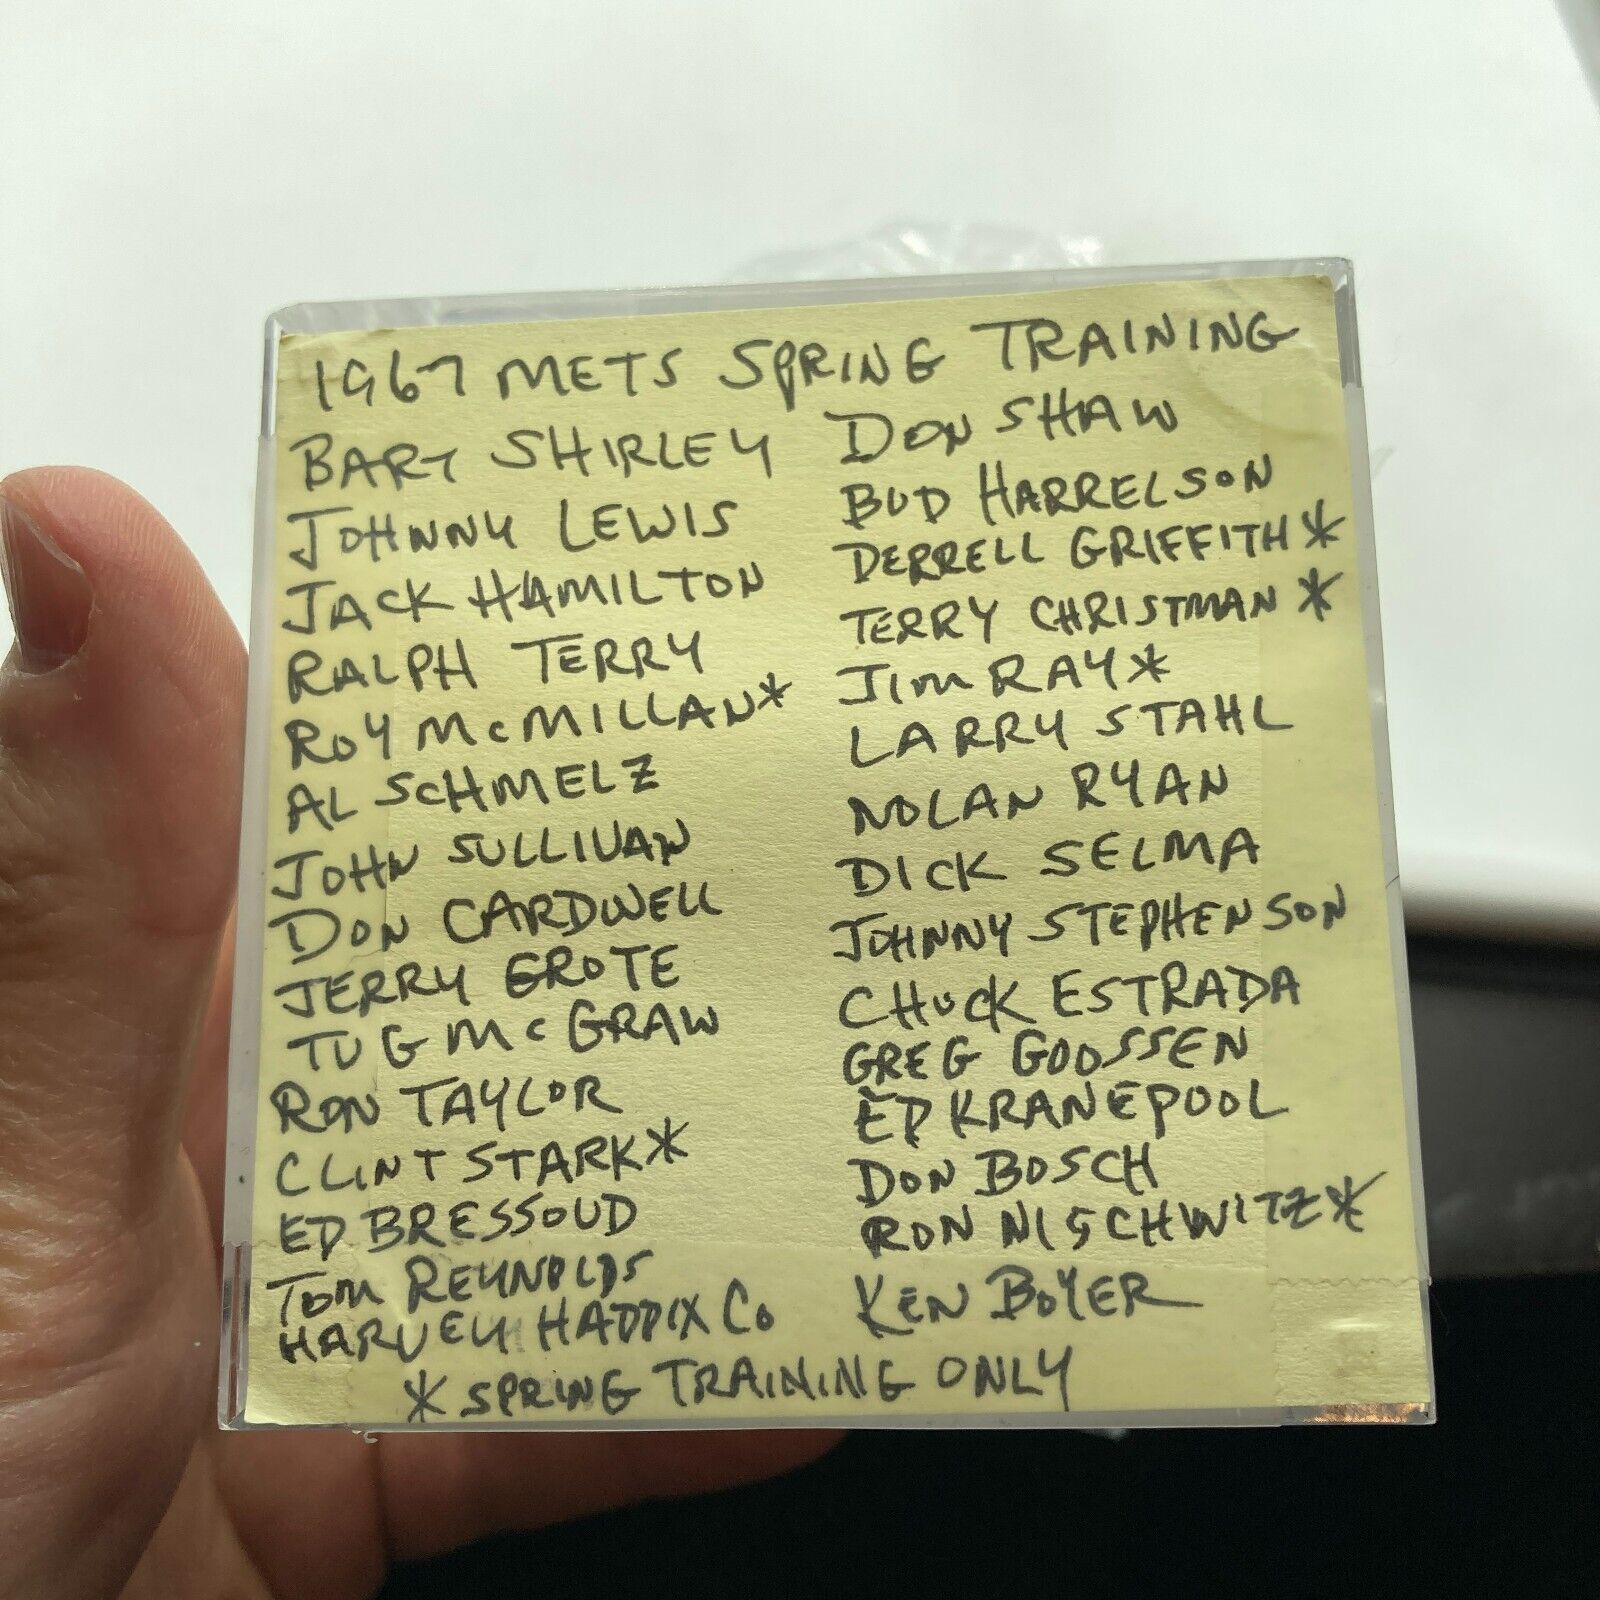 1967 METS SPRING TRAINING
BART SHIRLEY
JOHNNY LEWIS
JACK HAMILTON
RALPH TERRY
ROY McMILLAN*
AL SCHMELZ
JOHN SULLIVAN
DON CARDWELL
JERRY GROTE
TUG McGRAW
RON TAYLOR
CLINT STARK*
ED BRESSOUD
TOM REYNOLDS
HARVEY HADDIX Co
DON SHAW
BUD HARRELSON
DERRELL GRIFFITH*
TERRY CHRISTMAN*
JIM RAY*
LARRY STAHL
NOLAN RYAN
DICK SELMA
JOHNNY STEPHENSON
CHUCK ESTRADA
GREG GOOSSEN
ED KRANEPOOL
DON BOSCH
RON NISCHWITZ*
KEN BOYER
* SPRING TRAINING ONLY